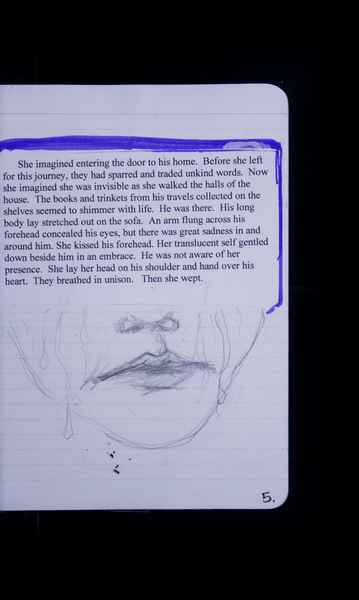 She imagined entering the door to his home. Before she left
for this journey, they had sparred and traded unkind words. Now
she imagined she was invisible as she walked the halls of the
house. The books and trinkets from his travels collected on the
shelves seemed to shimmer with life. He was there. His long
body lay stretched out on the sofa. An arm flung across his
forehead concealed his eyes, but there was great sadness in and
around him. She kissed his forehead. Her translucent self gentled
down beside him in an embrace. He was not aware of her
presence. She lay her head on his shoulder and hand over his
heart. They breathed in unison. Then she wept.
5.